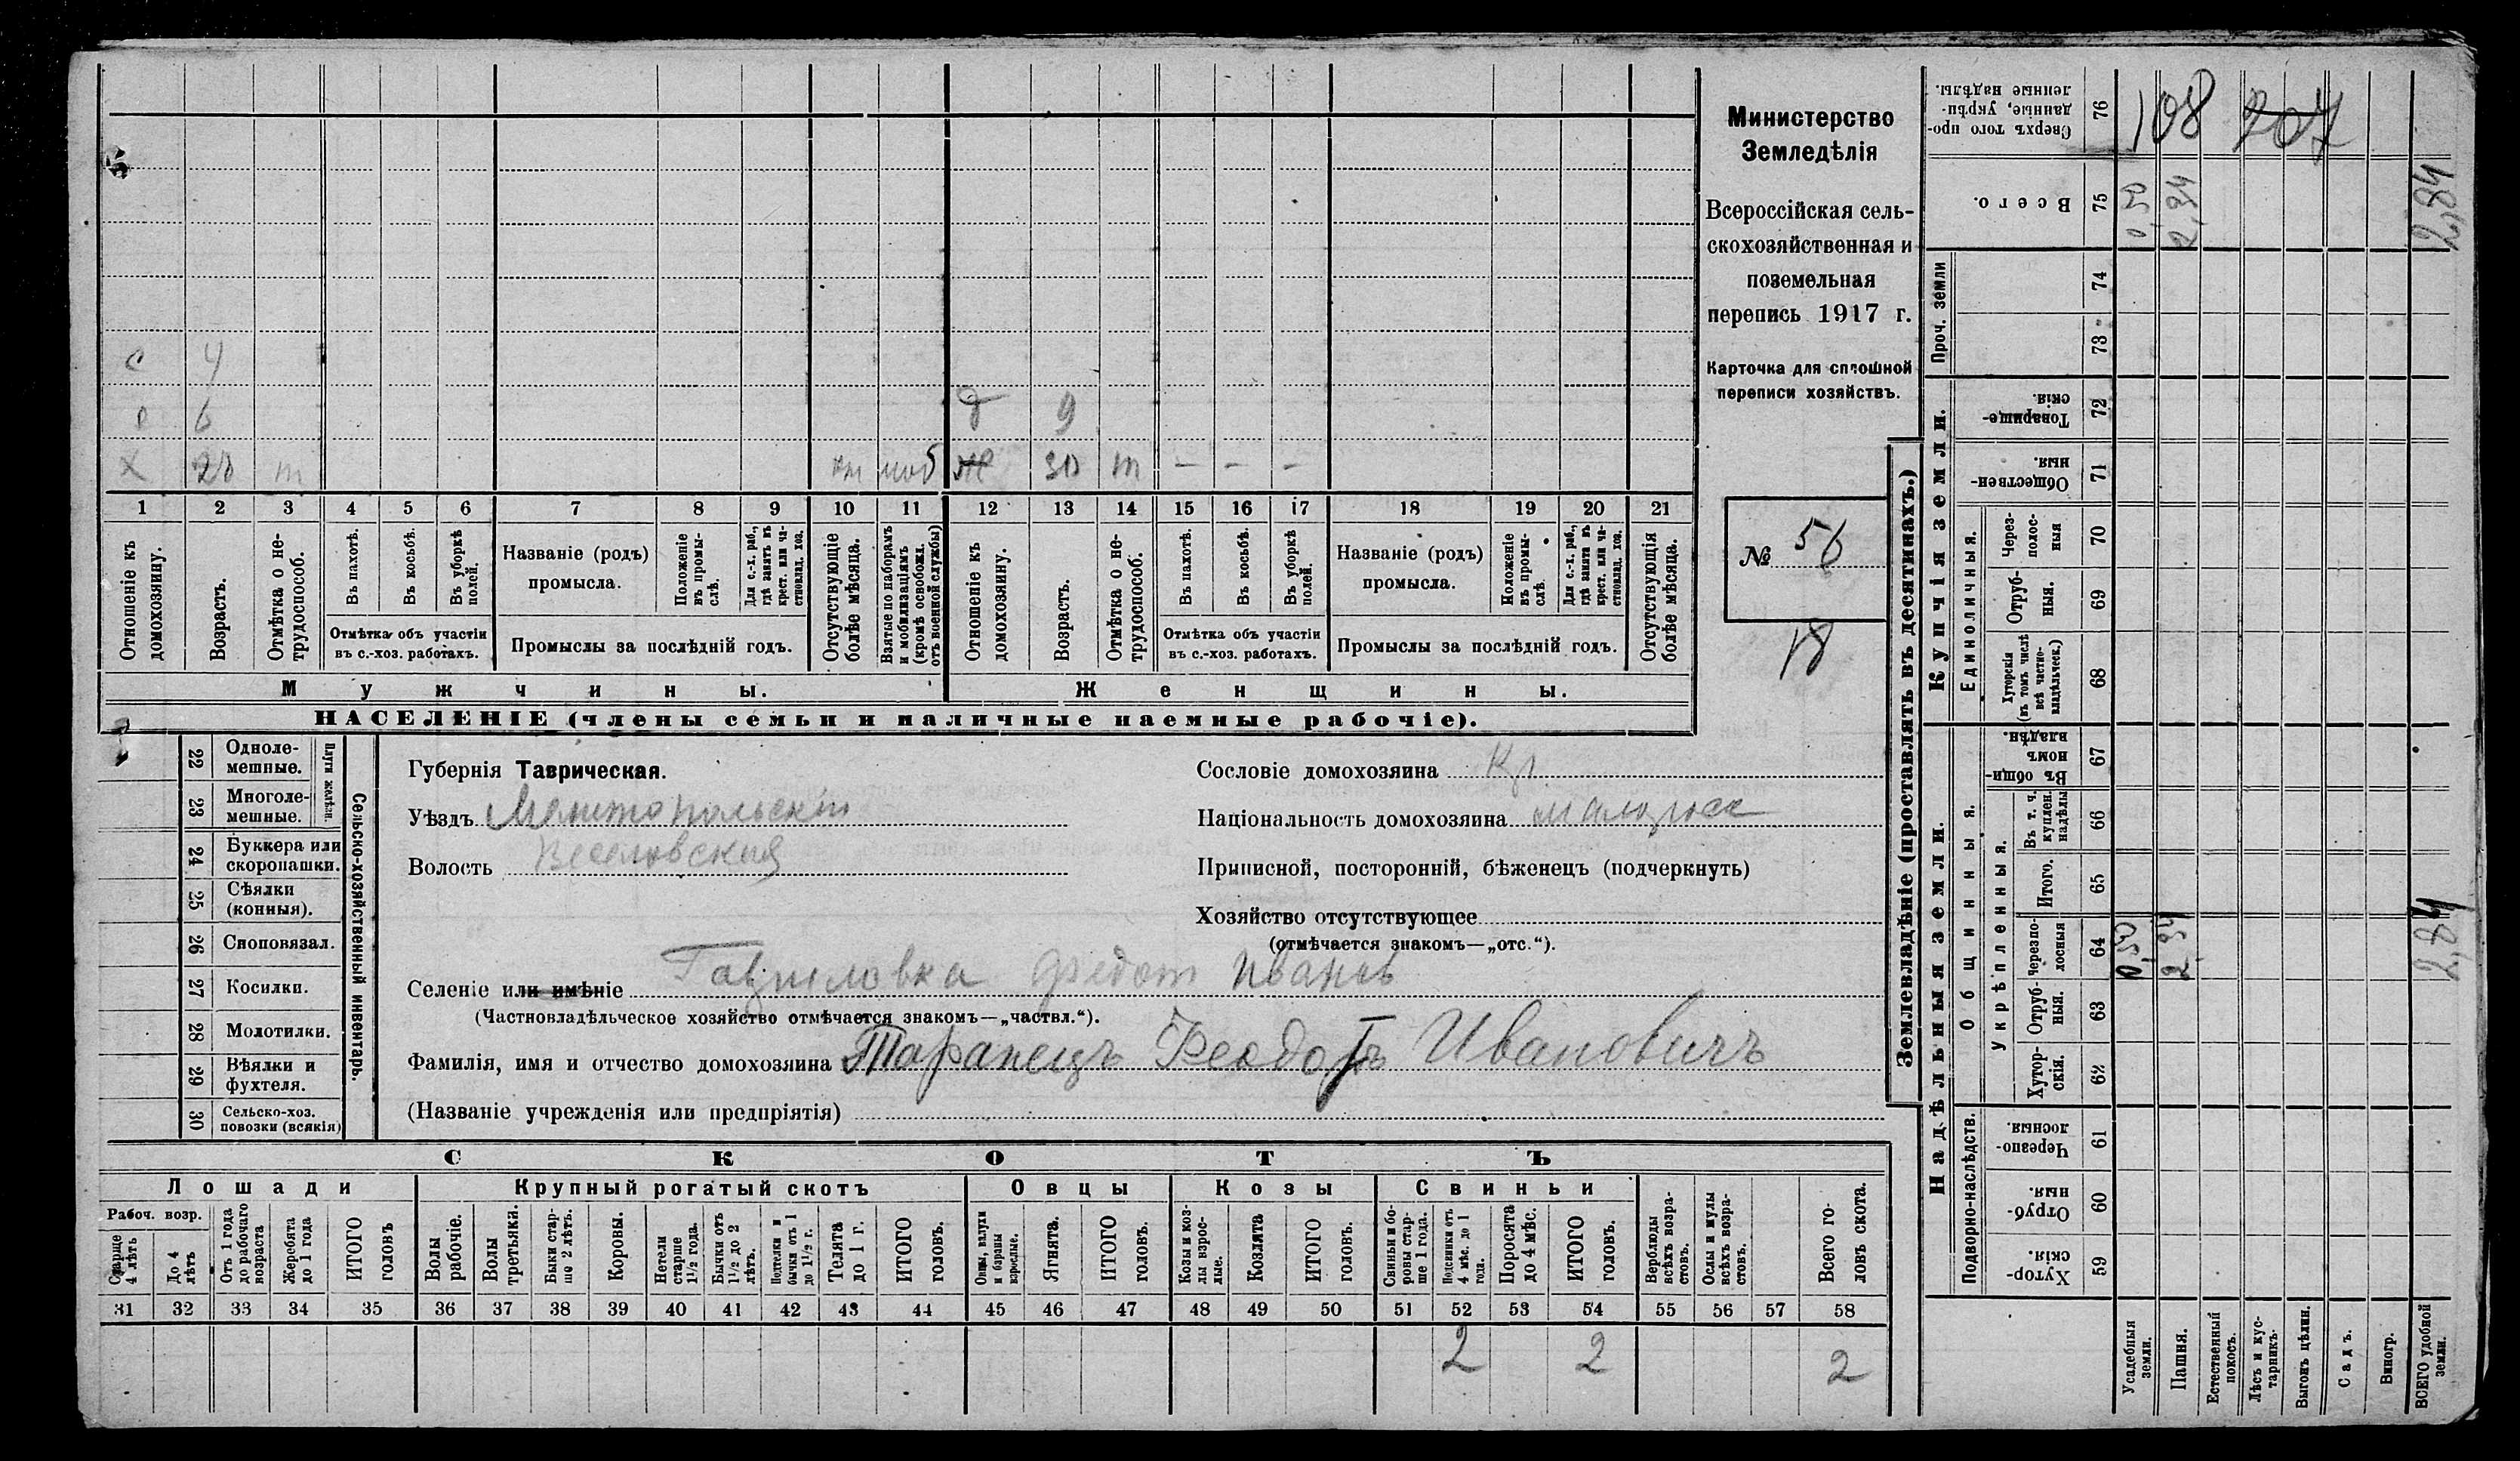 Министерство
Земледѣлія
Всероссійская сель-
скохозяйственная и
поземельная
перепись 1917 г.
Карточка для сплошной
переписи хозяйствъ.
№ 56
18
с 4
6 д 9
х 28 т моб ж 30 т — — —
1 2 3 4 5 6 7 8 9 10 11 12 13 14 15 16 17 18 19 20 21
Отношеніе къ домохозяину.
Возрастъ.
Отмѣтка о не-трудоспособ.
Въ пахотѣ.
Въ косьбѣ.
Въ уборкѣ полей.
Отмѣтка объ участіи
въ с.-хоз. работахъ.
Названіе (родъ)
промысла.
Положеніе въ промы-слѣ.
Для с.-х. раб., гдѣ занятъ въ крест. или ча-стновлад. хоз.
Промыслы за послѣдній годъ.
Отсутствующіе болѣе мѣсяца.
Взятые по наборамъ и мобилизаціямъ (кромѣ освобожд. отъ военной службы)
Отношеніе къ домохозяину.
Возрастъ.
Отмѣтка о не-трудоспособ.
Въ пахотѣ.
Въ косьбѣ.
Въ уборкѣ полей.
Отмѣтка объ участіи
въ с.-хоз. работахъ.
Названіе (родъ)
промысла.
Положеніе въ промы-слѣ.
Для с.-х. раб., гдѣ занята въ крест. или ча-стновлад. хоз.
Промыслы за послѣдній годъ.
Отсутствующія болѣе мѣсяца.
Мужчины. Женщины.
НАСЕЛЕНІЕ (члены семьи и наличные наемные рабочіе).
22 Одноле-мешные.
23 Многоле-мешные.
Плуги желѣзн.
24 Буккера или скоропашки.
25 Сѣялки (конныя).
26 Сноповязал.
27 Косилки.
28 Молотилки.
29 Вѣялки и фухтеля.
30 Сельско-хоз. повозки (всякія)
Сельско-хозяйственный инвентарь.
Губернія Таврическая.
Уѣздъ Мелитопольскій
Волость Веселовская
Сословіе домохозяина Кр
Національность домохозяина малорос
Приписной, посторонній, бѣженецъ (подчеркнуть)
Хозяйство отсутствующее
(отмѣчается знакомъ—„отс.“).
Селеніе или имѣніе Гавриловка Федот Иванов
(Частновладѣльческое хозяйство отмѣчается знакомъ—„частвл.“).
Фамилія, имя и отчество домохозяина Таранецъ Феодотъ Ивановичъ
(Названіе учрежденія или предпріятія)
СКОТЪ
Лошади Крупный рогатый скотъ Овцы Козы Свиньи
Рабоч. возр.
Старше 4 лѣтъ
До 4 лѣтъ
Отъ 1 года до рабочаго возраста
Жеребята до 1 года
ИТОГО головъ
Волы рабочіе.
Волы третьяки.
Быки стар-ше 2 лѣтъ.
Коровы.
Нетели старше 1½ года.
Бычки отъ 1½ до 2 лѣтъ.
Подтелки и бычки отъ 1 до 1½ г.
Телята до 1 г.
ИТОГО головъ.
Овцы, валухи и бараны взрослые.
Ягнята.
ИТОГО головъ.
Козы и коз-лы взрос-лые.
Козлята
ИТОГО головъ.
Свиньи и бо-ровы стар-ше 1 года.
Подсвинки отъ 4 мѣс. до 1 года.
Поросята до 4 мѣс.
ИТОГО головъ.
Верблюды всѣхъ возра-стовъ.
Ослы и мулы всѣхъ возра-стовъ.
Всего го-ловъ скота.
31 32 33 34 35 36 37 38 39 40 41 42 43 44 45 46 47 48 49 50 51 52 53 54 55 56 57 58
2 2 2
Землевладѣніе (проставлять въ десятинахъ.)
108 207
76 Сверхъ того про-данные, укрѣп-ленные надѣлы.
75 Всего. 0,50 2,34 2,84
74
73
Проч. земли
Купчія земли.
72 Товарище-скія.
71 Обществен-ныя.
Единоличныя.
70 Через-полос-ныя
69 Отруб-ныя.
68 Хуторскія (въ томъ числѣ всѣ частно-владѣльческ.)
Надѣльныя земли.
Общинныя.
67 Въ общин-номъ владѣн.
Укрѣпленныя.
66 Въ т. ч. куплен. надѣлы
65 Итого.
64 Черезпо-лосныя 0,50 2,34 2,84
63 Отруб-ныя.
62 Хутор-скія.
Подворно-наслѣдств.
61 Черезпо-лосныя.
60 Отруб-ныя.
59 Хутор-скія.
Усадебныя земли.
Пашня.
Естественный покосъ.
Лѣсъ и кус-тарникъ.
Выгонъ цѣлин.
Садъ.
Виногр.
ВСЕГО удобной земли.